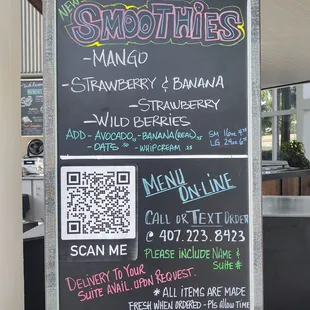 NEW SMOOTHIES
-MANGO
-STRAWBERRY & BANANA
-STRAWBERRY
-WILD BERRIES
ADD - AVOCADO - BANANA (REAL)
SM 16oz
- OATS - WHIPCREAM
LG 24oz
MENU
ON-LINE
CALL OR TEXT ORDER
@ 407.223.8423
SCAN ME
PLEASE INCLUDE NAME &
SUITE #
DELIVERY TO YOUR
SUITE AVAIL. UPON REQUEST.
* ALL ITEMS ARE MADE
FRESH WHEN ORDERED - PLS ALLOW TIME